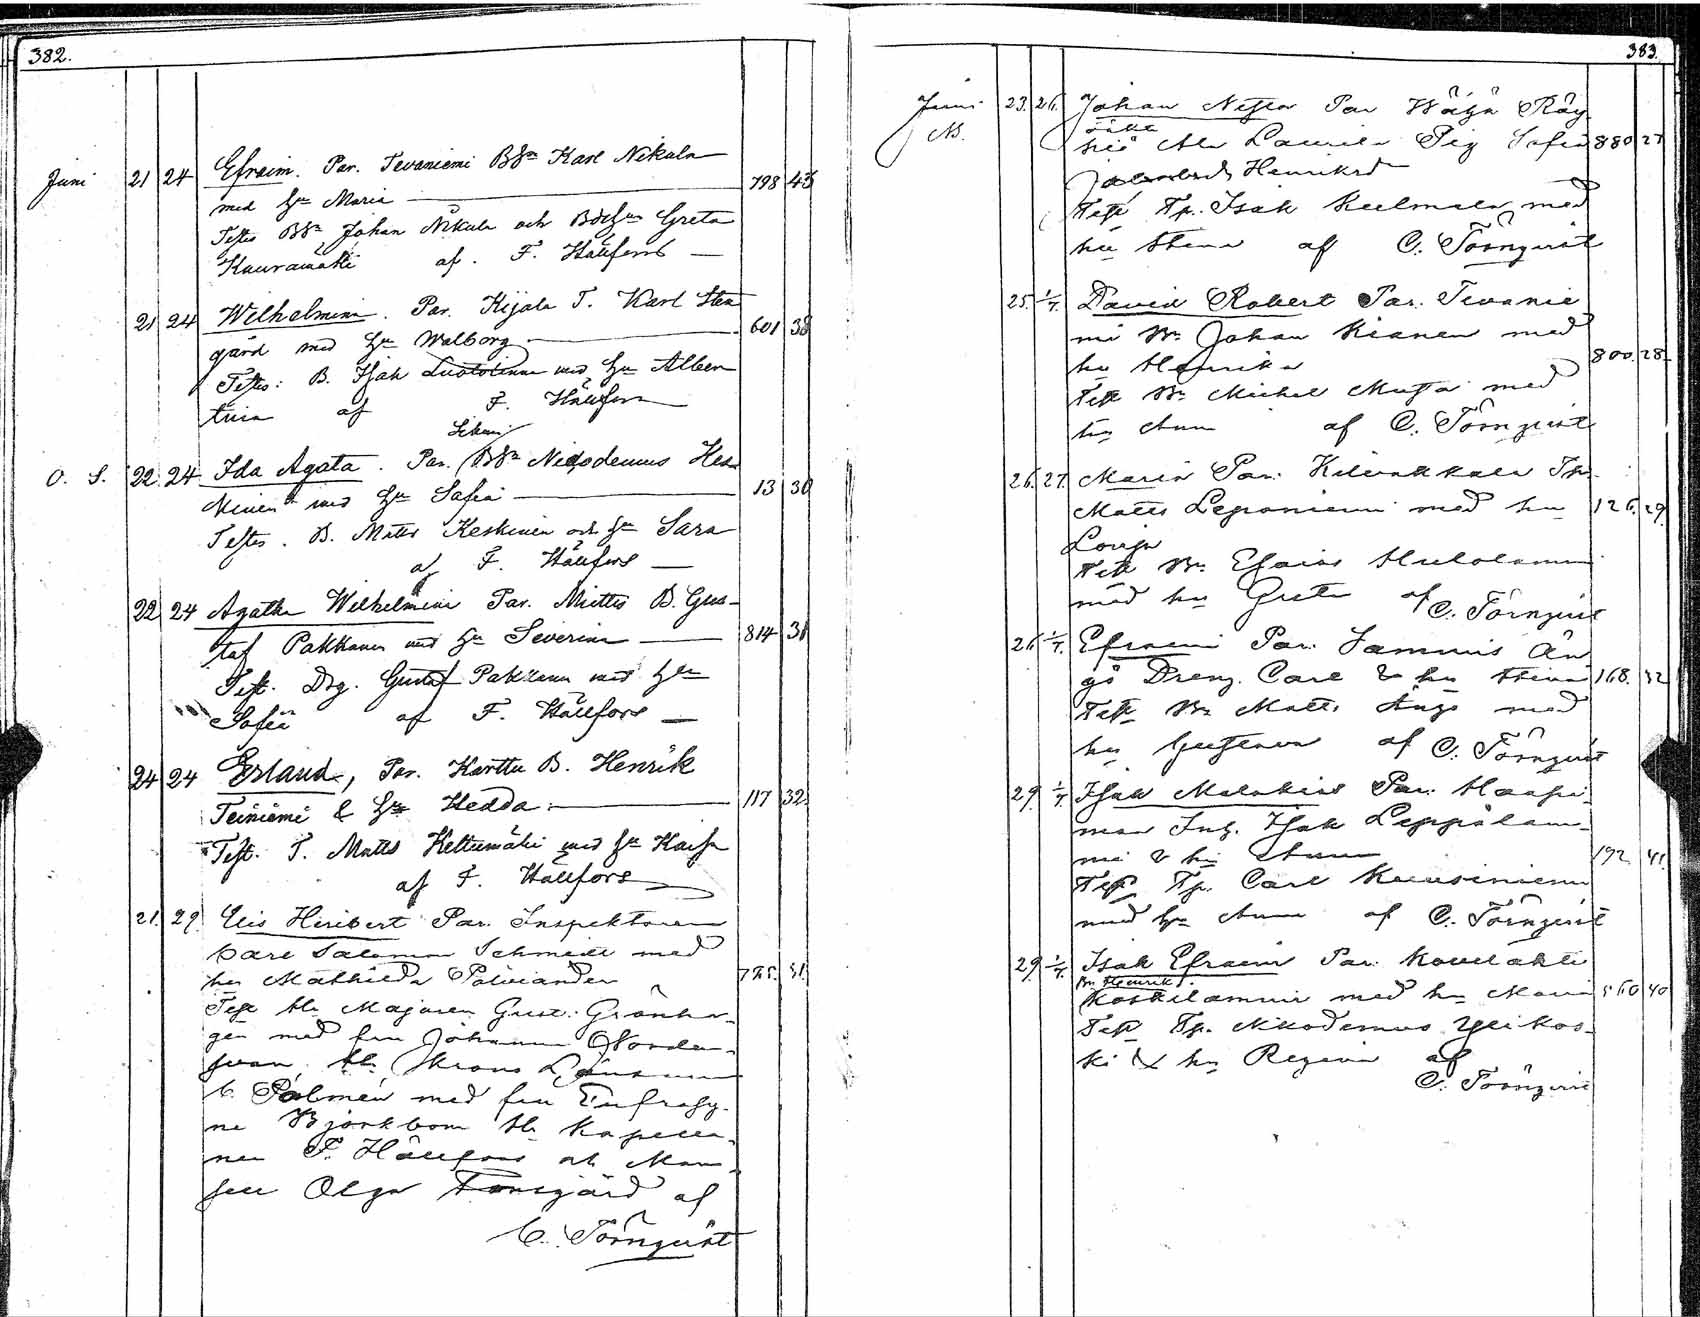 382.
Juni 21 24 Efraim. Par. Tevaniemi Bdn Karl Nikula
med hu Maria 798 43
Testes Bdn Johan Nikula och Bdehu Greta
Kauramäki af. F. Hällfors
21 24 Wilhelmina. Par. Kijala T. Karl Sten
gård med hu Walborg 601 38
Testes: B. Isak Luotolinna med hu Alben
tina af F. Hällfors
O. S. 22 24 Ida Agata. Par. Bdn Nicodemus Kes
kinen med hu Sofia 13 30
Testes. B. Matts Keskinen och hu Sara
af F. Hällfors
22 24 Agatha Wilhelmina Par. Miettis B. Gus-
taf Pakkanen med hu Severina 814 31
Test. Drg. Gustaf Pakkanen med hu
Sofia af F. Hällfors
24 24 Erland, Par. Karttu B. Henrik
Teiniemi & hu Hedda 117 32
Test. T. Matts Keltumäki med hu Kaisa
af F. Hällfors
21. 29. Elis Heribert Par. Inspektoren
Carl Salomon Schmidt med
hu Mathilda Polviander
Test Hr Majoren Gust. Grönha-
gen med fru Johanna
Hr Krono Länsman
C. Palmén med fru Eufrosy-
ne Björkbom Hr Kapella-
nen F. Hällfors och Mam-
sell Olga Forsgård af
C. Törnqvist
383.
Juni 23. 26. Johan Nestor Par Wäljä Röy
N.
hiö Laurila Pig Sofia 880 27
Henriksd
Test Tp. Isak Kulmala med
hu Stina af C. Törnqvist
25. 1/7. David Robert Par. Tevanie
mi Bn Johan Kianen med
hu Henrika 800. 28.
Test Bn Michel Musta med
hu Anna af C. Törnqvist
26. 27. Maria Par. Kilvakkala Tp.
Matts Leponiemi med hu 126. 29.
Lovisa
Test Bn Esaias
med hu Greta af C. Törnqvist
26 1/7. Efraim Par. Jammis Än
gö Dreng. Carl & hu Stina 168. 32
Test Bn Matts Ängö med
hu Gustava af C. Törnqvist
29. 1/7. Isak Malakias Par. Haapi-
maa Inh. Isak Leppälam-
mi & hu Anna 192. 41.
Test Tp. Carl Kuusiniemi
med hu Anna af C. Törnqvist
29. 1/7. Isak Efraim Par. Kovelahti
Bn Henrik
Koskilammi med hu Maria 560 40
Test Tp. Nikodemus Ylikos-
ki & hu Regina af
C. Törnqvist